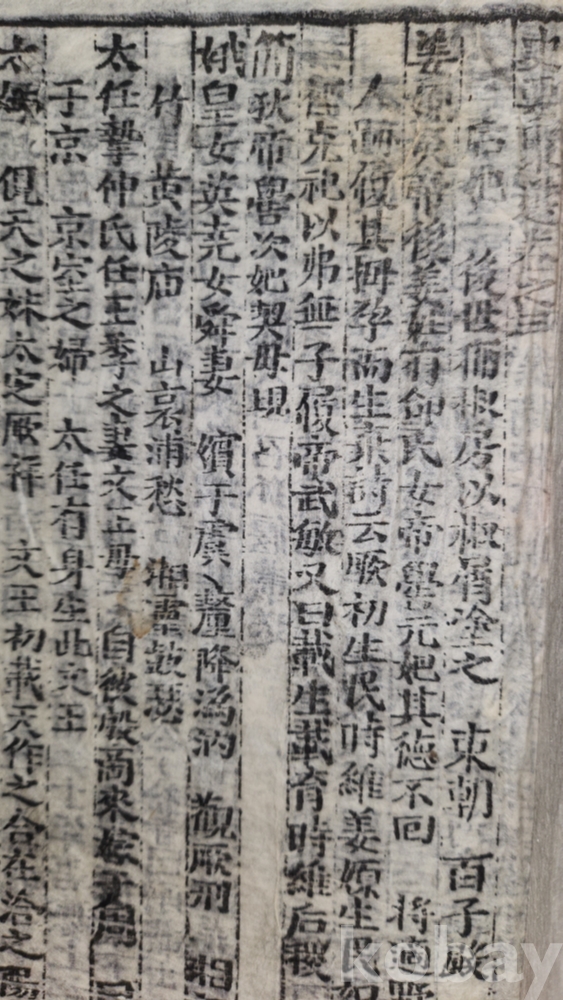 后妃 後世稱椒房以椒屑塗之 東朝 百子殿
姜嫄炎帝後姜姓有邰氏女帝嚳元妃其德不回 將適野
人跡履其拇孕而生棄詩云厥初生民時維姜嫄生民如
禋克祀以弗無子履帝武敏又曰載生載育時維后稷
簡狄帝嚳次妃契母
娥皇女英堯女舜妻 嬪于虞 釐降溈汭 觀厥刑 湘
竹 黃陵庙 山哀浦愁 湘靈鼓瑟
太任摯仲氏任王季之妻文王母 自彼殷商來嫁于周
于京 京室之婦 太任有身生此文王
太姒 俔天之妹 文定厥祥 文王初載天作之合在洽之陽
kobay